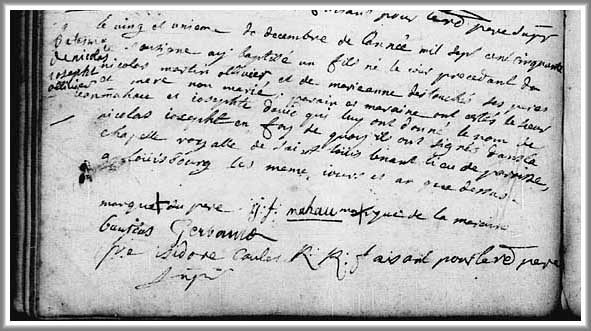 faisant pour le rd pere Supr
le vingt et unieme de decembre de l'année mil sept cent cinquante
Bateme de nicolas iosepht ollivier
ay baptisé un fils né le iour precedant de
nicolas martin ollivier et de marieanne destouches ses peres
et mere non mariés, parain et maraine ont estés le Sieur
mahau et iosephte qui luy ont donné le nom de
nicolas iosepht en foy de quoy ils ont signés dans la
chapelle royalle de saint louis tenant lieu de paroisse,
a louisbourg les meme iours et an que dessus.
marque + du pere j. f. mahau marque + de la maraine
Gerbaud
fre isidore Caulet R: R: faisant pour le rd pere
Supr